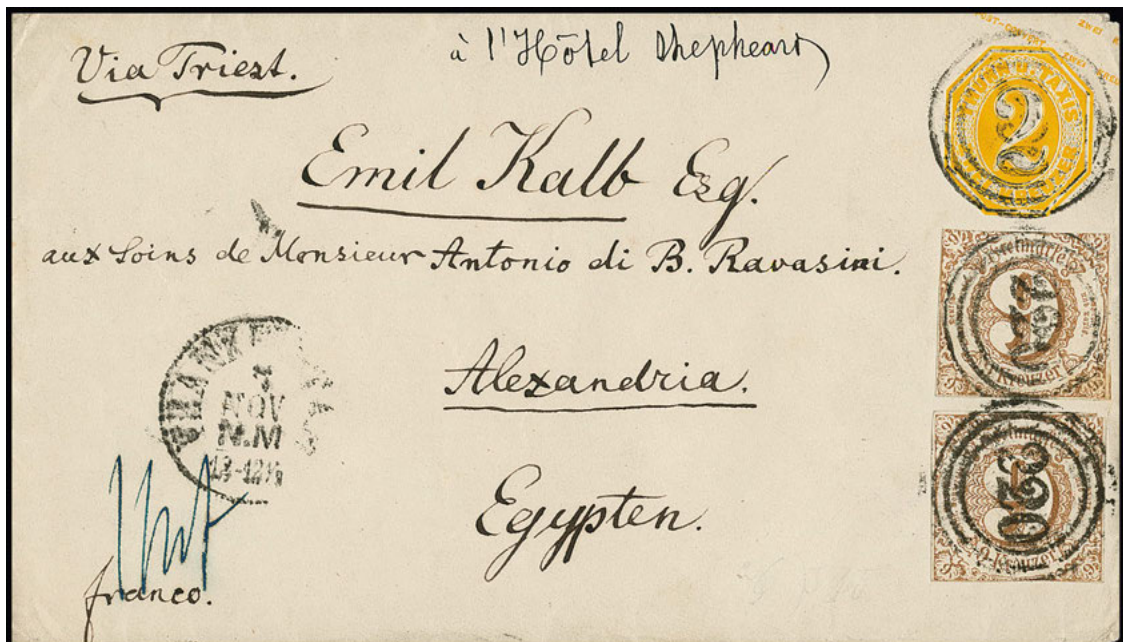 Via Triest.
à l'Hôtel Shepheard
Emil Kalb Esq.
aux Soins de Monsieur Antonio di B. Ravasini.
Alexandria.
Egypten.
franco.
NOV
N.M
THURN U. TAXIS
2
ZWEI KREUZER
9 Kreuzer
220
9 Kreuzer
220